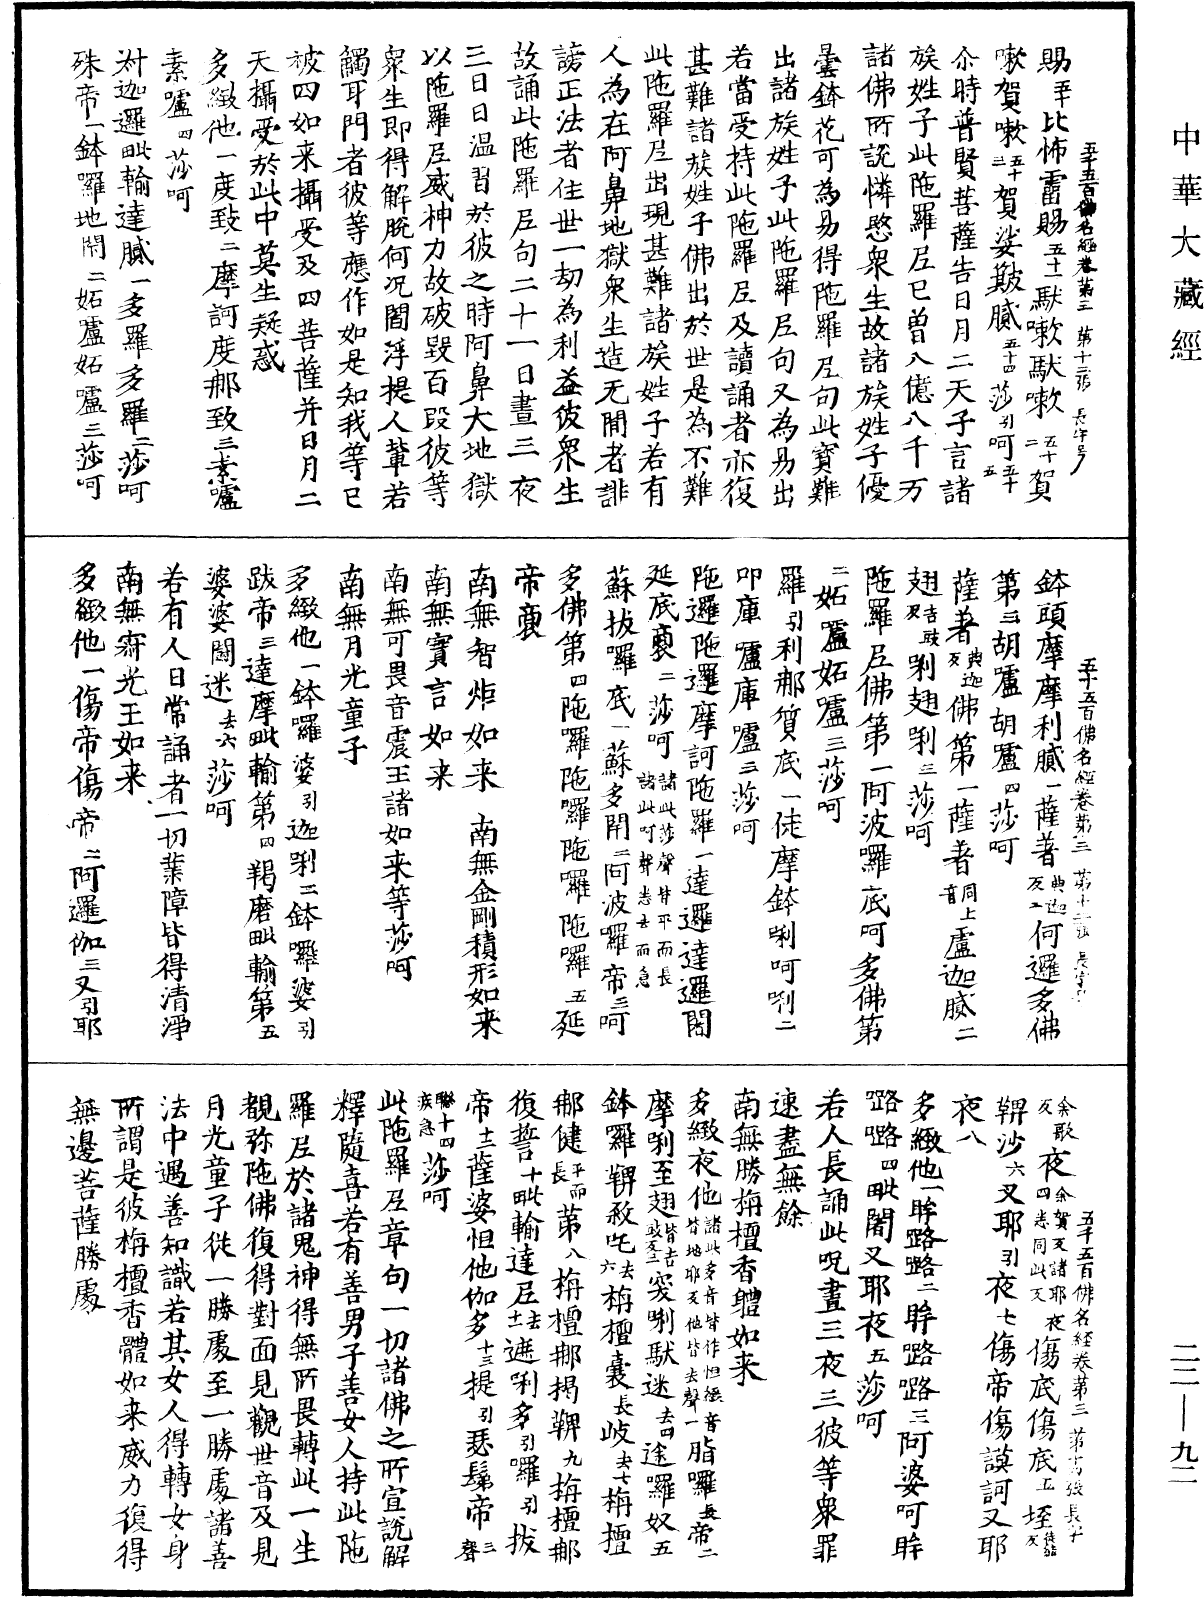 中華大藏經
二二—九二
五千五百佛名經卷第三 第十三張 長字号
賜五十比怖雷賜五十一馱嗽馱嗽五十二賀
嗽賀嗽五十三賀娑皽膩五十四莎引呵五十五
尒時普賢菩薩告日月二天子言諸
族姓子此陁羅𡰱已曽八億八千万
諸佛所說憐愍衆生故諸族姓子優
曇鉢花可為易得陁羅𡰱句此寶難
出諸族姓子此陁羅𡰱句又為易出
若當受持此陁羅𡰱及讀誦者亦復
甚難諸族姓子佛出於世是為不難
此陁羅𡰱出現甚難諸族姓子若有
人為在阿鼻地獄衆生造无間者誹
謗正法者住世一劫為利益彼衆生
故誦此陁羅𡰱句二十一日晝三夜
三日日温習於彼之時阿鼻大地獄
以陁羅𡰱威神力故破毀百段彼等
衆生即得解脫何况閻浮提人輩若
觸耳門者彼等應作如是知我等已
被四如来攝受及四菩薩并日月二
天攝受於此中莫生疑惑
多緻他一度致二摩訶度郍致三素嚧
素嚧四莎呵
尌迦邏毗輸達膩一多羅多羅二莎呵
殊帝一鉢囉地閇二妬盧妬嚧三莎呵
五千五百佛名經卷第三 第十二張 長字号
鉢頭摩摩利膩一薩著典迦反二何邏多佛
第三胡嚧胡嚧四莎呵
薩者典迦反佛第一薩者同上音盧迦膩二
翅吉豉反唎翅唎三莎呵
陁羅𡰱佛第一阿波囉底呵多佛第
二妬嚧妬嚧三莎呵
羅引利郍質底一徒摩鉢唎呵唎二
叩庫嚧庫嚧三莎呵
陁邏陁邏摩訶陁羅一達邏達邏閤
延底裛二莎呵諸此莎聲皆平而長諸此呵聲悉去而急
蘇拔囉底一蘇多閇二阿波囉帝三呵
多佛第四陁羅陁囉陁囉陁羅五延
帝裛
南無智炬如来 南無金剛積形如来
南無寶言如来
南無可畏音震王諸如来等莎呵
南無月光童子
多緻他一鉢囉婆引迦唎二鉢囉婆引
跋帝三達摩毗輸第四羯磨毗輸第五
婆婆闘迷去六莎呵
若有人日常誦者一切業障皆得清淨
南無齋光王如来
多緻他一傷帝傷帝二阿邏伽三又引耶
五千五百佛名經卷第三 第十四張 長字
余歌反夜余賀反諸耶夜四悉同此反傷底傷底五垤
鞞沙六又耶引夜七傷帝傷謨訶又耶
夜八
多緻他一眸路路二眸路路三阿婆呵眸
路路四毗闍又耶夜五莎呵
若人長誦此呪晝三夜三彼等衆罪
速盡無餘
南無勝栴檀香軆如来
多緻夜他諸此多音皆作怛緻音皆地耶反他皆去聲一脂囉長帝二
摩唎至翅皆吉豉反三窔唎馱迷去四途羅奴五
鉢羅鞞敍吒去六栴檀裛長歧去七栴檀
郍健平而長第八栴檀郍揭鞞九栴檀郍
復誓十毗輸達𡰱去十一遮唎多引囉引拔
帝十二薩婆怛他伽多十三提引瑟鬀帝三聲
聯十四疾急莎呵
此陁羅𡰱章句一切諸佛之所宣說解
釋隨喜若有善男子善女人持此陁
羅𡰱於諸鬼神得無所畏轉此一生
覩弥陁佛復得對面見觀世音及見
月光童子從一勝處至一勝處諸善
法中遇善知識若其女人得轉女身
所謂是彼栴檀香體如来威力復得
無邊菩薩勝處